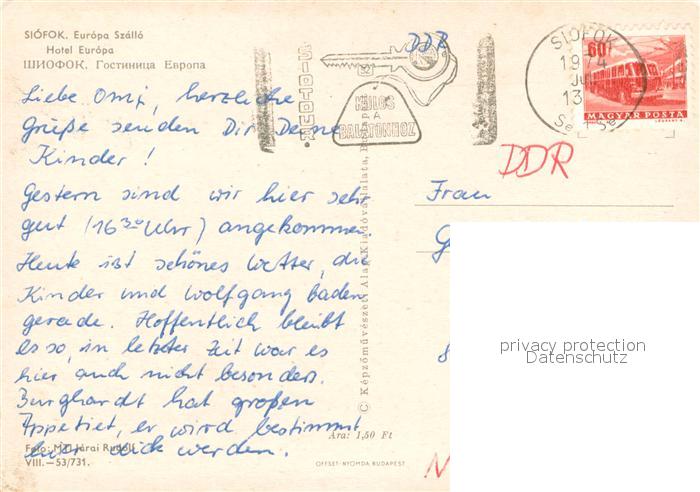 SIÓFOK. Európa Szálló
Hotel Európa
ШИОФОК. Гостиница Европа
Liebe Omi, herzliche
Grüße senden Dir Deine
Kinder!
Gestern sind wir hier sehr
gut (16³⁰ Uhr) angekommen.
Heute ist schönes Wetter, die
Kinder und Wolfgang baden
gerade. Hoffentlich bleibt
es so, in letzter Zeit war es
hier auch nicht besonders.
Burghardt hat großen
Appetiet, er wird bestimmt
hier dick werden.
Foto: MTI Járai Rudolf
VIII.—53/731.
Ára: 1,50 Ft
OFFSET-NYOMDA BUDAPEST
© Képzőművészeti Alap Kiadóvállalata, Budapest
SIOTOUR
KULCS
A
BALATONHOZ
DDR
SIÓFOK
1974
13
60f
MAGYAR POSTA
DDR
Frau
G
privacy protection
Datenschutz